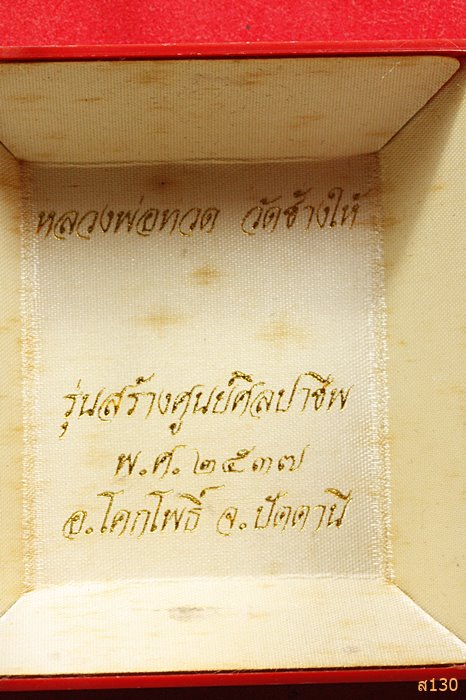 หลวงพ่อทวด วัดช้างให้
รุ่นสร้างศูนย์ศิลปาชีพ
พ.ศ. ๒๕๓๗
อ.โคกโพธิ์ จ.ปัตตานี
ส130